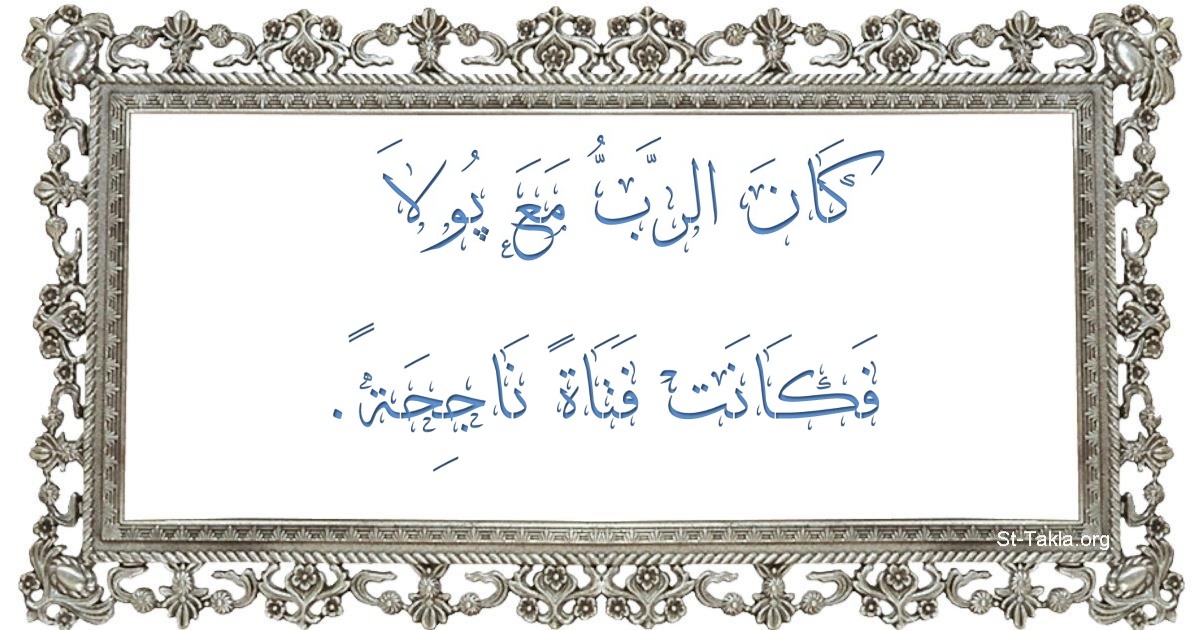 كَانَ الرَّبُّ مَعَ پُولاَ
فَكَانَتْ فَتَاةً نَاجِحَةً.
St-Takla.org